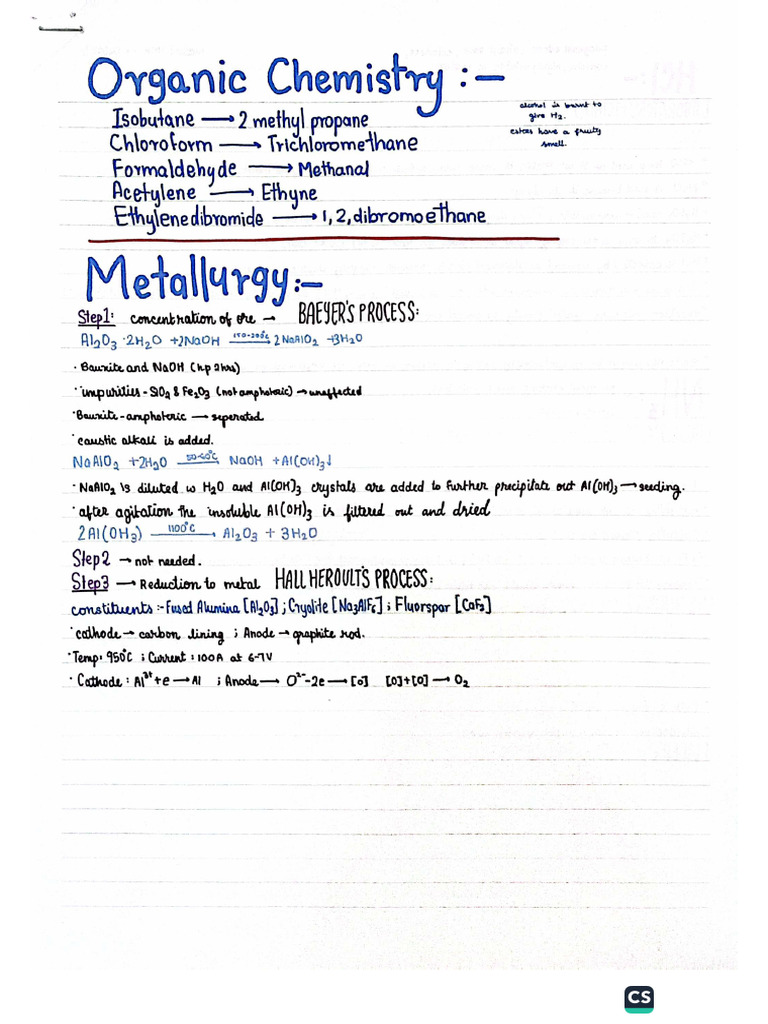 Organic Chemistry :-
Isobutane → 2 methyl propane
Chloroform → Trichloromethane
Formaldehyde → Methanal
Acetylene → Ethyne
Ethylenedibromide → 1,2,dibromoethane
alcohol is burnt to
give H₂.
esters have a fruity
smell.
Metallurgy:-
Step1: concentration of ore → BAEYER'S PROCESS:
Al₂O₃·2H₂O +2NaOH 150-200°C→ 2NaAlO₂ +3H₂O
· Bauxite and NaOH (hp 2hrs)
· impurities - SiO₂ & Fe₂O₃ (not amphoteric) → uneffected
· Bauxite-amphoteric → seperated
· caustic alkali is added.
NaAlO₂ +2H₂O 50-60°C→ NaOH +Al(OH)₃↓
· NaAlO₂ is diluted w H₂O and Al(OH)₃ crystals are added to further precipitate out Al(OH)₃ → seeding.
· after agitation the insoluble Al(OH)₃ is filtered out and dried
2Al(OH₃) 1100°C→ Al₂O₃ + 3H₂O
Step2 → not needed.
Step3 → Reduction to metal HALL HEROULT'S PROCESS:
constituents :- Fused Alumina [Al₂O₃] ; Cryolite [Na₃AlF₆] ; Fluorspar [CaF₂]
· cathode → carbon lining ; Anode → graphite rod.
· Temp: 950°C ; Current : 100A at 6-7V
· Cathode : Al³⁺+e → Al ; Anode → O²⁻-2e → [O] [O]+[O] → O₂
CS